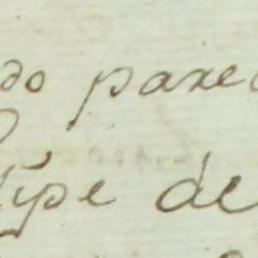 do pare
lipe de